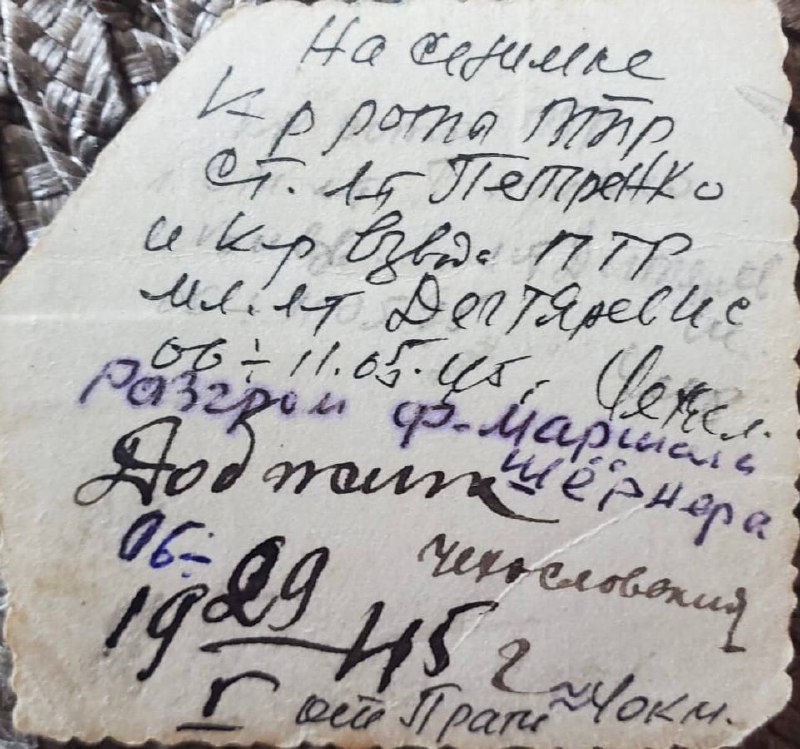 На снимке
К-р роты ПТР
ст. л-т Петренко
и к-р взвода ПТР
мл. л-т Дегтярев
06 ÷ 11.05.45, Чехосл.
разгром ф-маршала
Шёрнера
06-
Чехословакия
19 29 45 г
V от Праги ≈ 40 км.